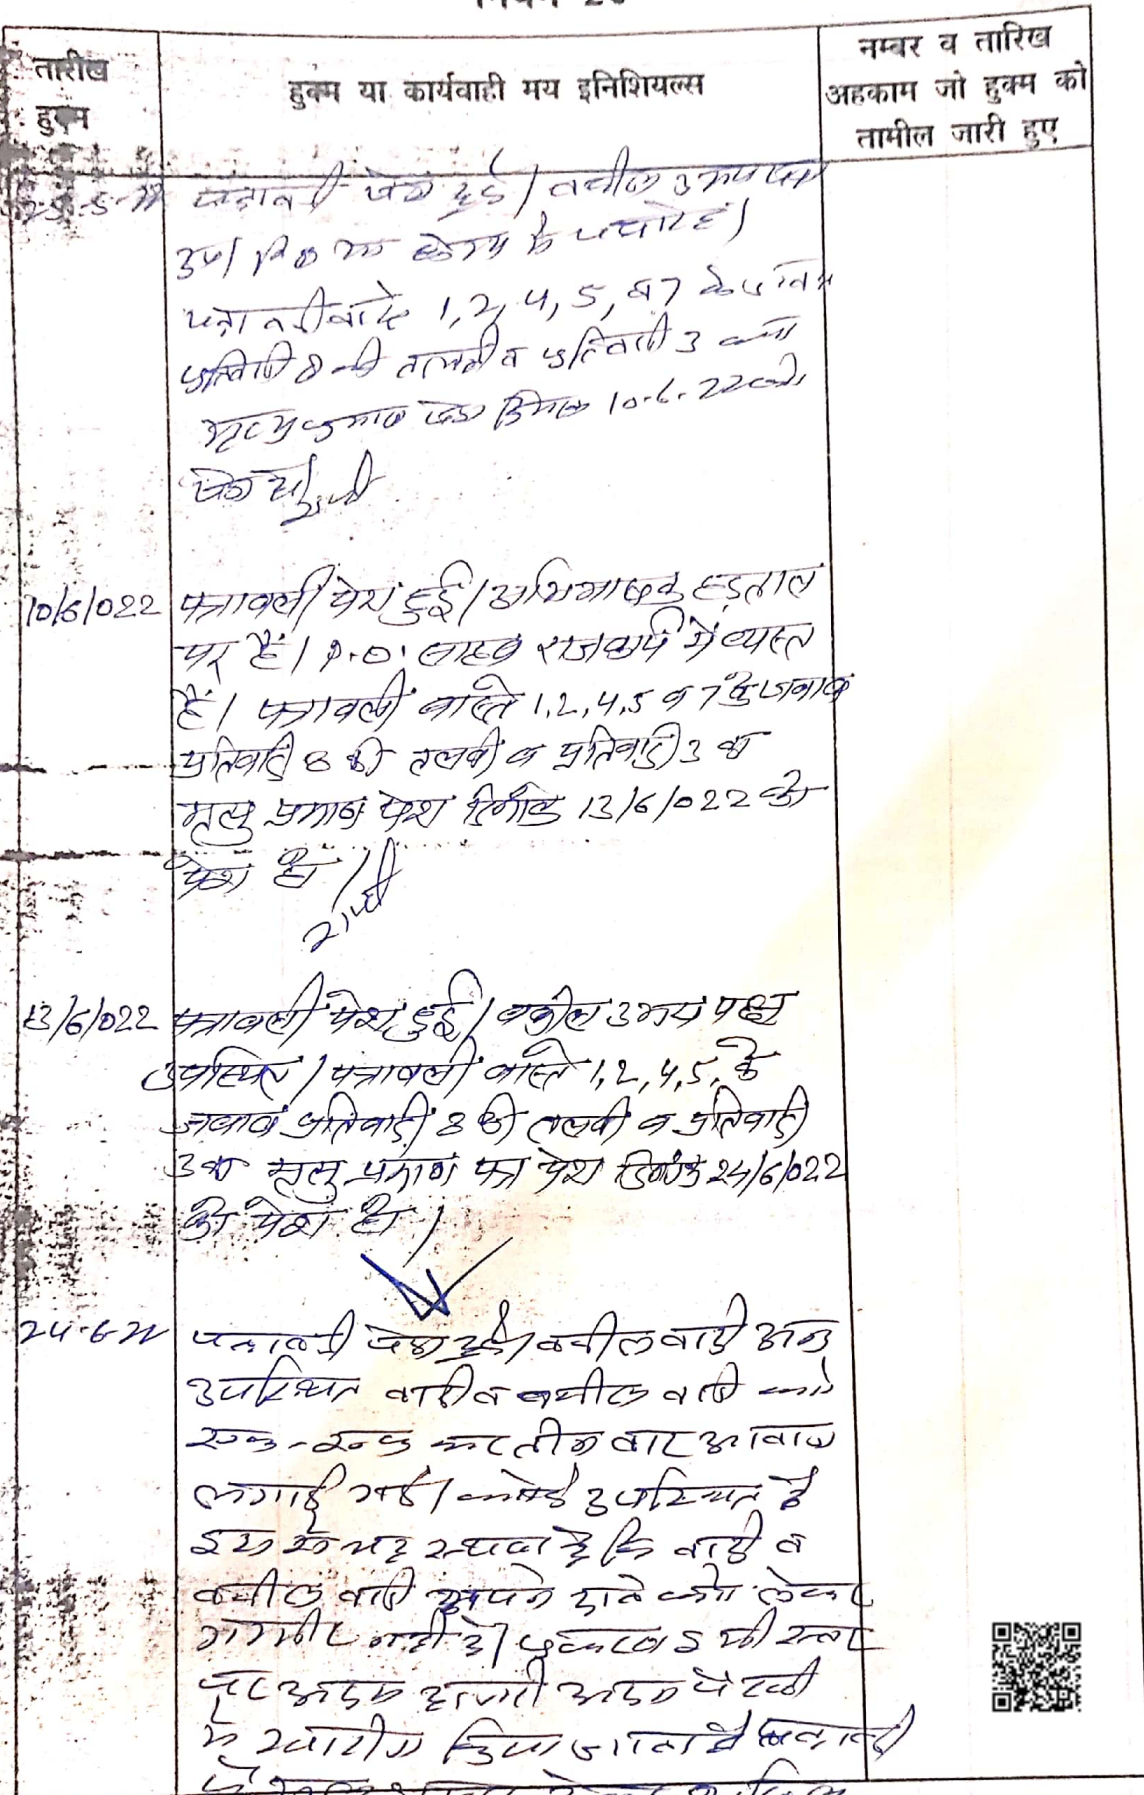 नियम 26
तारीख
हुक्म
हुक्म या कार्यवाही मय इनिशियल्स
नम्बर व तारिख
अहकाम जो हुक्म को
तामील जारी हुए
पत्रावली पेश हुई। वकील उभय पक्ष
1, 2, 4, 5, व 7 के
प्रतिवादी 8 की तलबी व प्रतिवादी 3 का
मृत्यु प्रमाण पेश दिनांक 10-6-22 को
पेश हो।
10/6/022 पत्रावली पेश हुई। अभिभाषक हड़ताल
पर हैं। P.O. साहब राजकार्य में व्यस्त
हैं। पत्रावली वास्ते 1,2,4,5 व 7 के जवाब
प्रतिवादी 8 की तलबी व प्रतिवादी 3 का
मृत्यु प्रमाण पेश दिनांक 13/6/022 को
पेश हो।
13/6/022 पत्रावली पेश हुई। वकील उभय पक्ष
उपस्थित। पत्रावली वास्ते 1,2,4,5, के
जवाब प्रतिवादी 8 की तलबी व प्रतिवादी
3 का मृत्यु प्रमाण पत्र पेश दिनांक 24/6/022
को पेश हो।
24-6-22 पत्रावली पेश हुई। वकील वादी अनु
उपस्थित वादी व वकील वादी को
एक-एक कर तीन बार आवाज
लगाई गई। कोई उपस्थित
है कि वादी व
वकील वादी अपने दावे को लेकर
गम्भीर नहीं है। प्रकरण इसी स्तर
पर अदम हाजरी अदम पैरवी
में खारीज किया जाता है पत्रावली